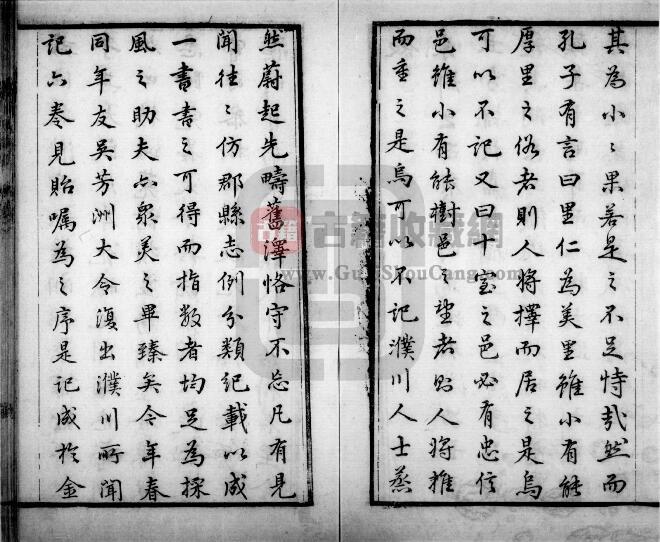 其為小〻果若是之不足恃哉然而
孔子有言曰里仁為美里雖小有能
厚里之俗者則人將擇而居之是烏
可以不記又曰十室之邑必有忠信
邑雖小有能樹邑之望者則人將推
而重之是烏可以不記濮川人士蒸
然蔚起先疇舊澤恪守不忘凡有見
聞往〻仿郡縣志例分類紀載以成
一書書之可得而指数者均足為採
風之助夫亦衆美之畢臻矣今年春
同年友吳芳洲大令復出濮川所聞
記六卷見貽囑為之序是記成於金
古籍
古籍收藏網
www.GuJiShouCang.com